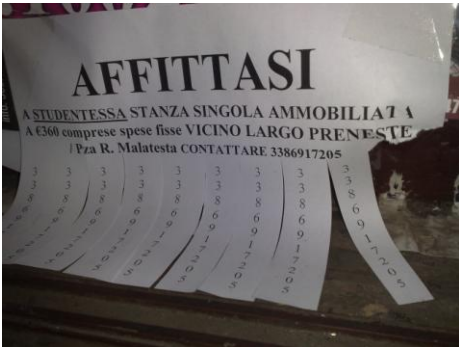 AFFITTASI
A STUDENTESSA STANZA SINGOLA AMMOBILIATA
A €360 comprese spese fisse VICINO LARGO PRENESTE
/ Pza R. Malatesta CONTATTARE 3386917205
3386917205
3386917205
3386917205
3386917205
3386917205
3386917205
3386917205
3386917205